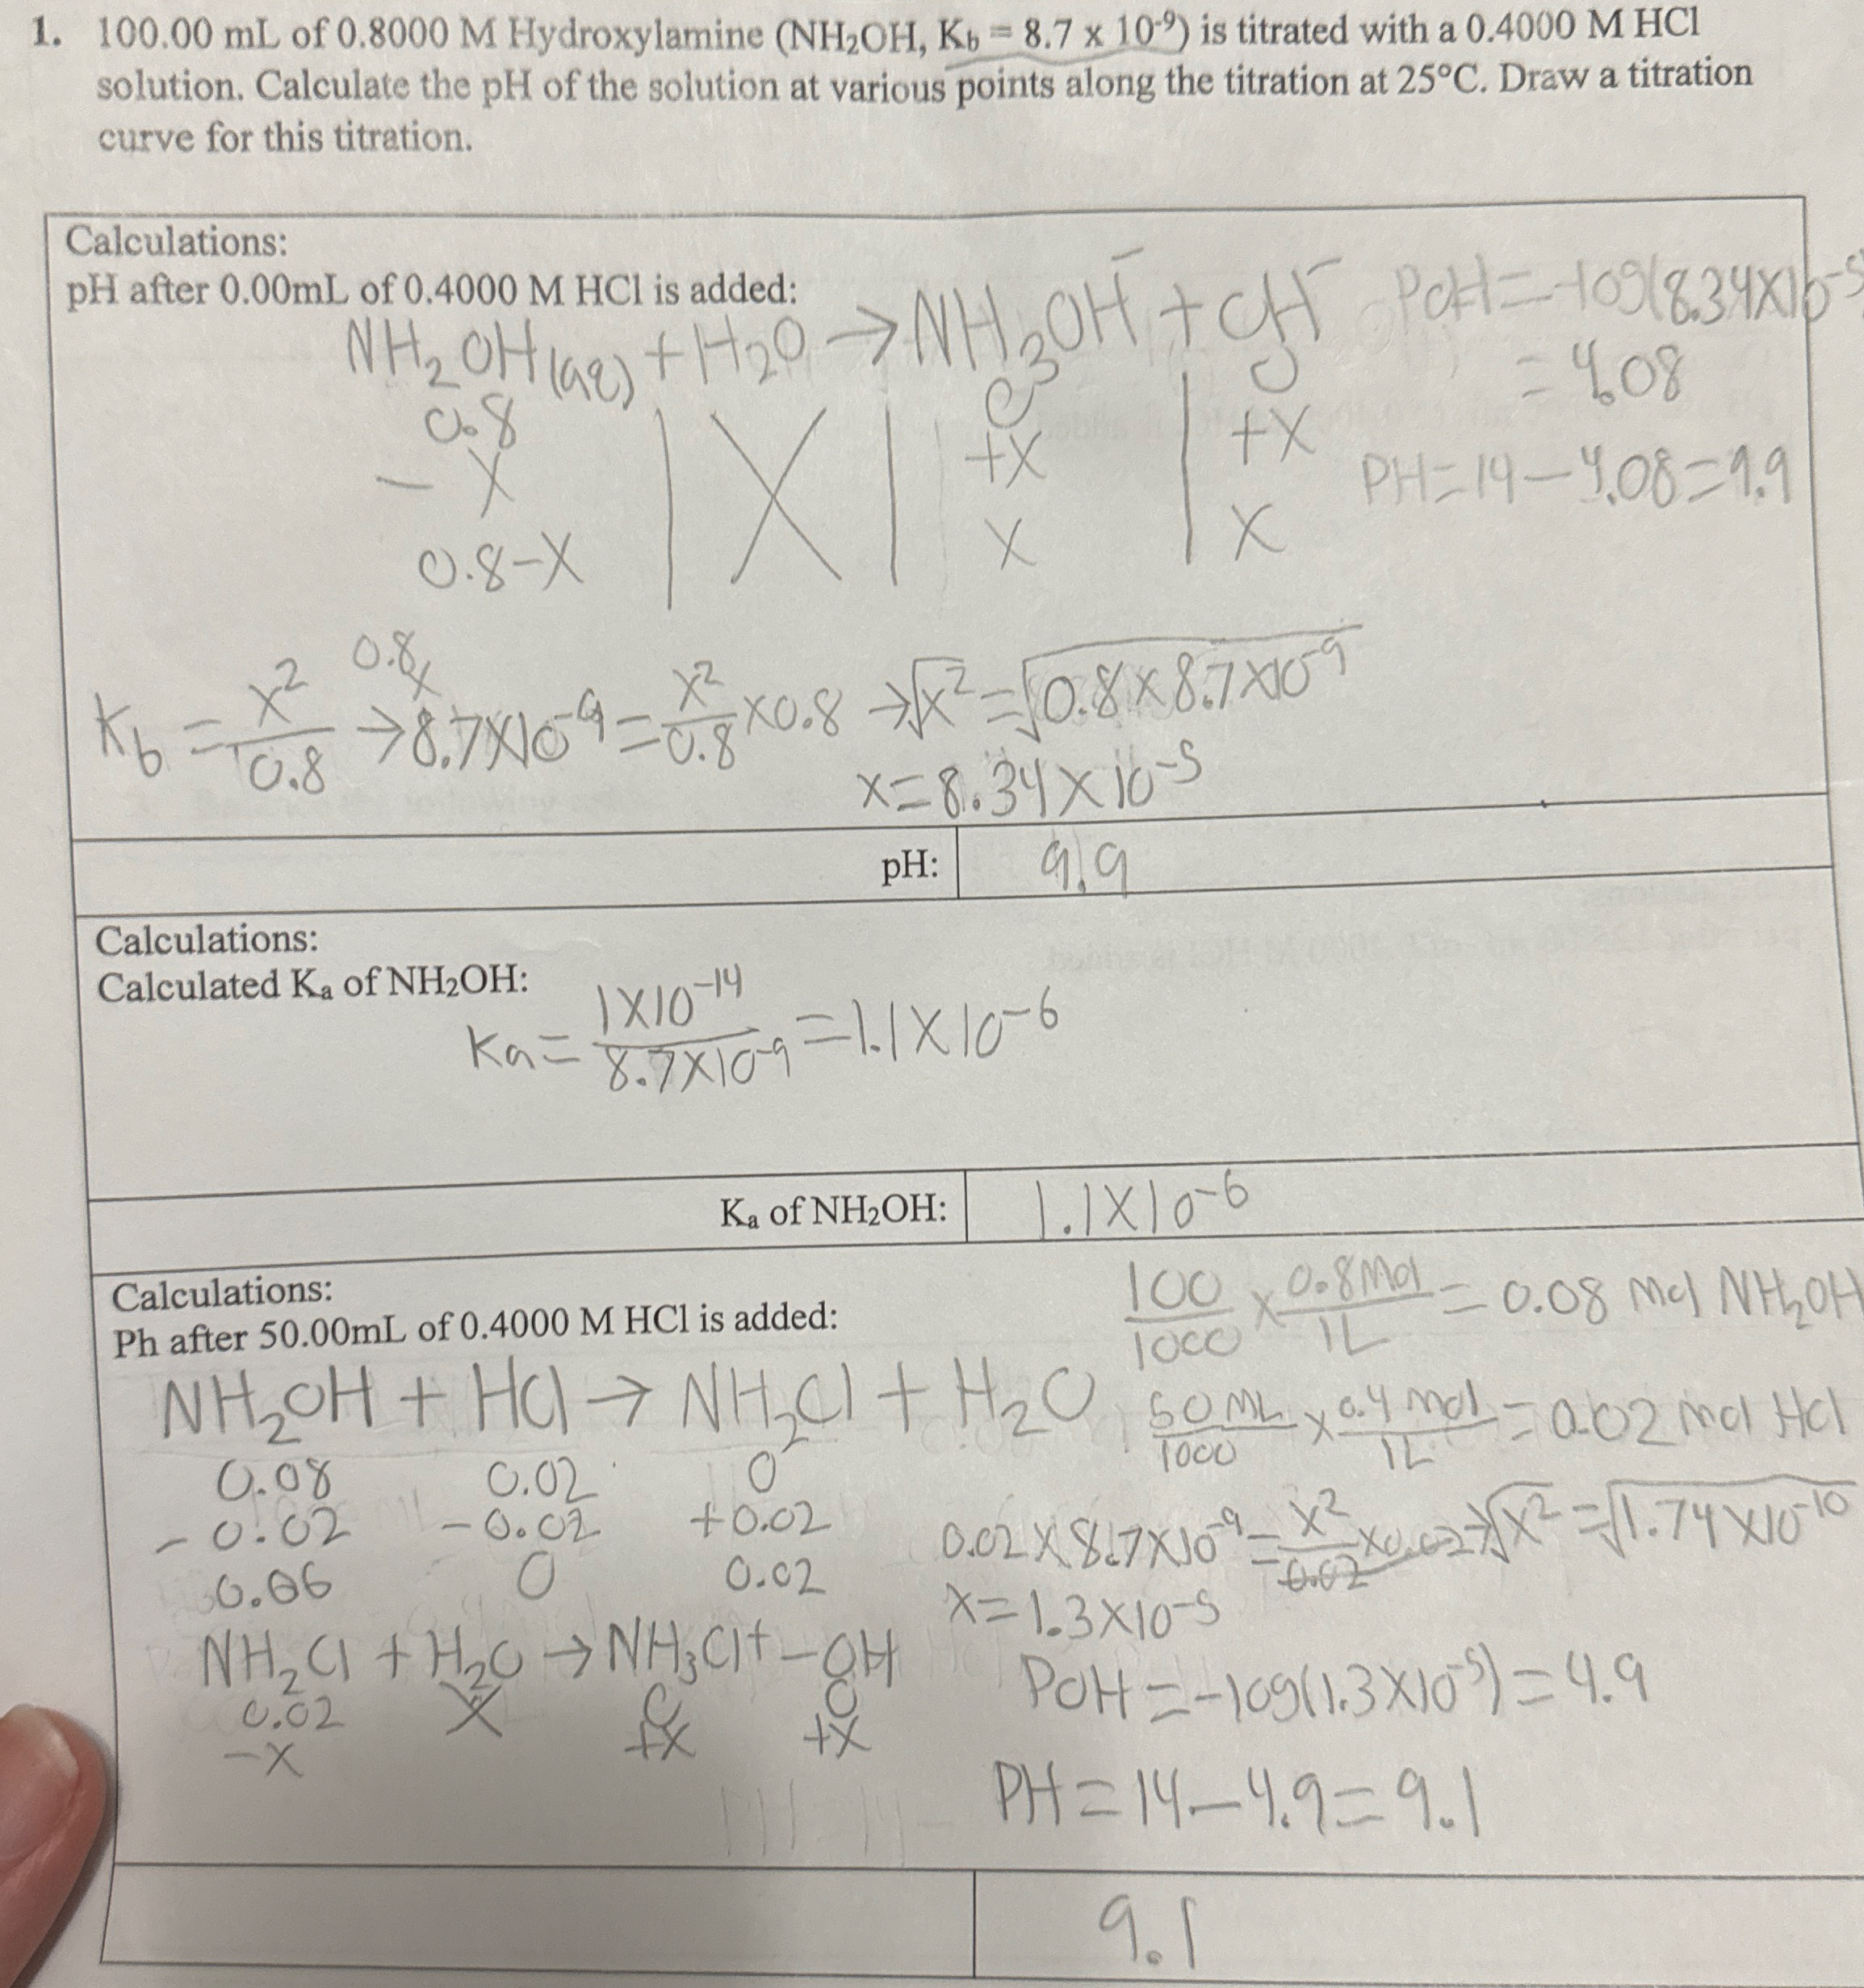 1. 100.00 mL of 0.8000 M Hydroxylamine (NH₂OH, K_b = 8.7 x 10⁻⁹) is titrated with a 0.4000 M HCl
solution. Calculate the pH of the solution at various points along the titration at 25°C. Draw a titration
curve for this titration.
Calculations:
pH after 0.00mL of 0.4000 M HCl is added:
NH₂OH(aq) + H₂O → NH₃OH⁻ + OH⁻
0.8 | X | 0 | 0
-X +X +X
0.8-X X X
POH = -log(8.34X10⁻⁵)
= 4.08
PH = 14 - 4.08 = 9.9
K_b = X²/0.8 → 0.8 x 8.7X10⁻⁹ = X²/0.8 X0.8 → √X² = √0.8 X 8.7X10⁻⁹
X = 8.34 X 10⁻⁵
pH: 9.9
Calculations:
Calculated Kₐ of NH₂OH:
Ka = 1X10⁻¹⁴/8.7X10⁻⁹ = 1.1X10⁻⁶
Kₐ of NH₂OH: 1.1X10⁻⁶
Calculations:
Ph after 50.00mL of 0.4000 M HCl is added:
100/1000 X 0.8Mol/1L = 0.08 Mol NH₂OH
NH₂OH + HCl → NH₂Cl + H₂O
50 ML/1000 X 0.4 mol/1L = 0.02 mol HCl
0.08 0.02 0
-0.02 -0.02 +0.02
0.06 0 0.02
0.02 X 8.7X10⁻⁹ = X²/0.02 X0.02 → √X² = √1.74X10⁻¹⁰
X = 1.3X10⁻⁵
NH₂Cl + H₂O → NH₃Cl + -OH
0.02 X 0 0
-X +X +X
POH = -log(1.3X10⁻⁵) = 4.9
PH = 14 - 4.9 = 9.1
9.1